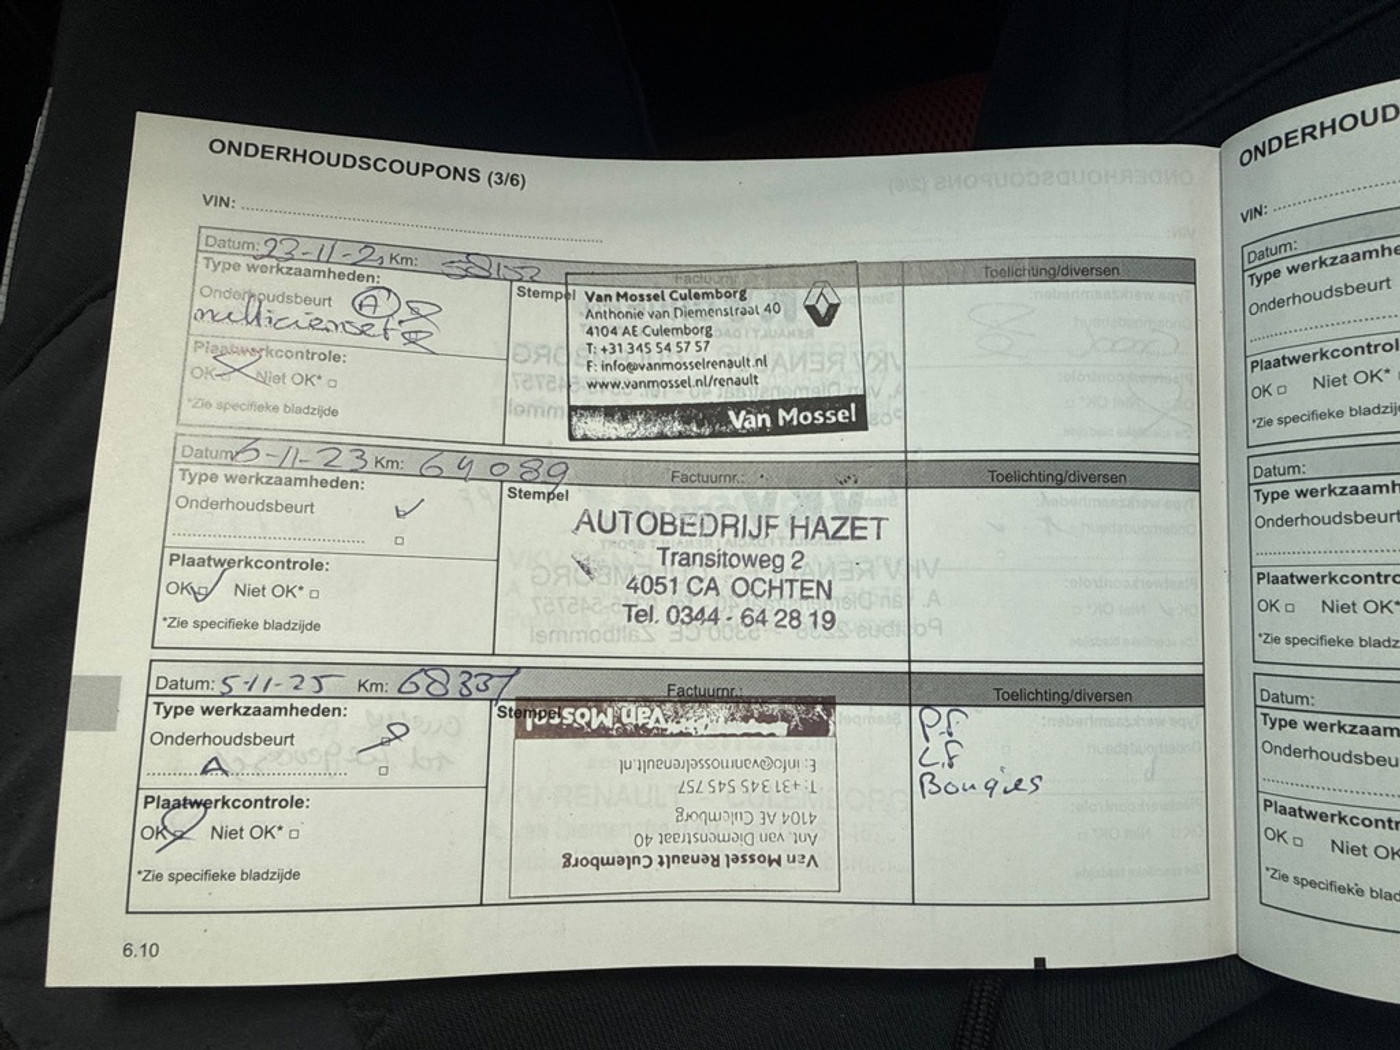 ONDERHOUDSCOUPONS (3/6)
VIN:
Datum: 23-11-21 Km: 58152
Factuurnr.:
Toelichting/diversen
Type werkzaamheden:
Onderhoudsbeurt A
Plaatwerkcontrole:
OK Niet OK*
*Zie specifieke bladzijde
Stempel
Van Mossel Culemborg
Anthonie van Diemenstraat 40
4104 AE Culemborg
T: +31 345 54 57 57
F: info@vanmosselrenault.nl
www.vanmossel.nl/renault
Van Mossel
Datum: 6-11-23 Km: 64089
Factuurnr.:
Toelichting/diversen
Type werkzaamheden:
Onderhoudsbeurt
Plaatwerkcontrole:
OK Niet OK*
*Zie specifieke bladzijde
Stempel
AUTOBEDRIJF HAZET
Transitoweg 2
4051 CA OCHTEN
Tel. 0344 - 64 28 19
Datum: 5-11-25 Km: 68337
Factuurnr.:
Toelichting/diversen
Type werkzaamheden:
Onderhoudsbeurt
A
Plaatwerkcontrole:
OK Niet OK*
*Zie specifieke bladzijde
Stempel
Van Mossel Renault Culemborg
Ant. van Diemenstraat 40
4104 AE Culemborg
T: +31 345 545 757
E: info@vanmosselrenault.nl
Van Mossel
P.F.
L.F
Bougies
6.10
ONDERHOUD
VIN:
Datum:
Type werkzaamhe
Onderhoudsbeurt
Plaatwerkcontrol
OK Niet OK*
*Zie specifieke bladzij
Datum:
Type werkzaamh
Onderhoudsbeurt
Plaatwerkcontro
OK Niet OK*
*Zie specifieke bladz
Datum:
Type werkzaam
Onderhoudsbeu
Plaatwerkcontr
OK Niet OK
*Zie specifieke blad